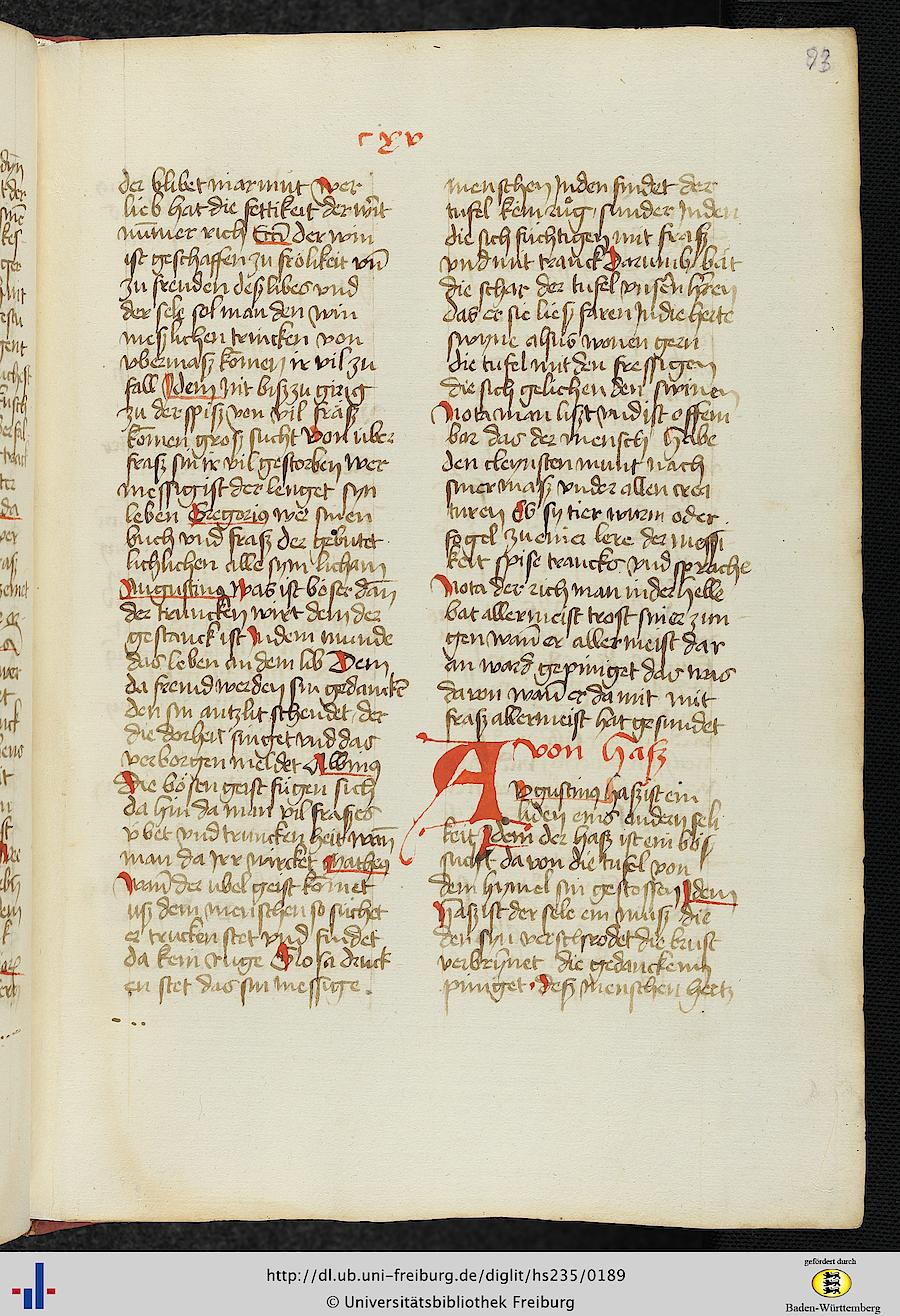 93
cxv
der blibet niar mut Wer
lieb hat die fettikeit der wirt
nūmer rich Ecci Der win
ist geschaffen zu frölikeit vn̄
zu freuden desz libes vnd
der sele sol man den win
meszlichen trincken von
vbermasz kōmen ir vil zu
fall Idem Nit bisz zu girig
zu der spisz von vil frasz
kōmen grosz sucht Von über
frasz sin ir vil gestorben wer
messig ist der lenget syn
leben Gregorius wer sinen
buch vnd frasz der gebutet
lichlichen alle syn licham
Augustinus Was ist böser dān
der truncken wirt dem der
gestanck ist Indem munde
das leben an dem lib Dem
da fremd werden sin gedancke
den sin antzlit schendet der
die dorheit singet vnd das
verborgen meldet Albinus
Die bösen geist fügen sich
da hin da man vil frases
übet vnd truncken heit wān
man da irr wircket Matheus
Wān der übel geist kōmet
usz dem menschen so süchet
er trucken stet vnd findet
da kein ruge Glosa druck
en stet das sin messige .
menschen Inden findet der
tüfel kein rüg sunder Inden
die sich füchtigen mit frasz
vnd mit tranck Darumb bat
die schar der tüfel vnsern hēren
das er sie liesz faren In die herte
swyne alsus wonen gern
die tüfel mit den fressigen
die sich gelichen den swinen
Nota man liszt vnd ist offem
bar das der mensch habe
den cleynsten munt nach
siner masz vnder allen crea
turen Es sy tier wurm oder
fogel zu einer lere der messi
keit spise trancks vnd sprache
Nota der rich man in der helle
bat allermeist trost siner zun
gen wann er allermeist dar
an ward gepiniget das was
da von wān er da mit mit
frasz allermeist hat gesundet
von Hasz
Augustinus hasz ist ein
liden eins andern seli
keit Idem der hasz ist ein bösz
sucht da von die tüfel von
dem hymel sin gestossen Idem
Hasz ist der sele ein  die
den syn verschrodet die brust
verbrynnet die gedancken
pinget . Desz menschen hertz
http://dl.ub.uni-freiburg.de/diglit/hs235/0189
© Universitätsbibliothek Freiburg
gefördert durch
Baden-Württemberg